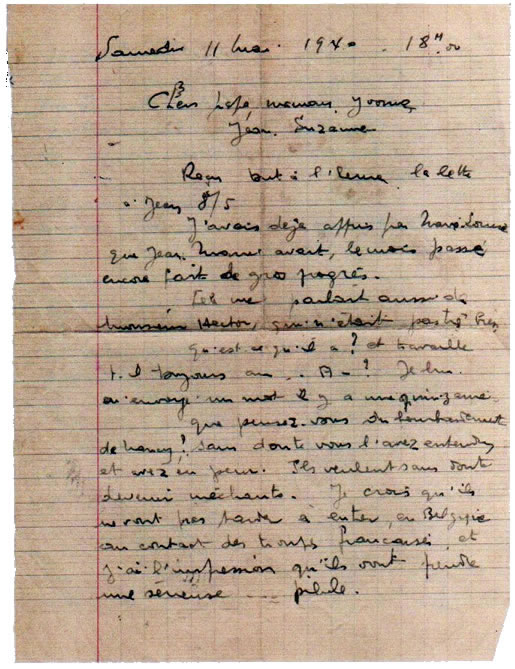 Samedi 11 Mai 1940 . 18 H 00
Chers papa maman, Yvonne,
Jean. Suzanne
Reçu tout à l'heure la lettre
à Jean 8/5
J'avais déjà appris par
que Jean avait, le mois passé
encore fait de gros progrès.
me parlait aussi de
monsieur Hector, qui n'était pas très
Qu'est ce qu'il a? et travaille
t-il toujours au . A - ? Je lui
ai envoyé un mot il y a une quinzaine
que pensez-vous du bombardement
de Nancy? Sans doute vous l'avez entendu
et avez eu peur. Ils veulent sans doute
devenir méchants. Je crois qu'ils
ne vont pas tarder à entrer, en Belgique
au contact des troupes françaises et
j'ai l'impression qu'ils vont prendre
une sérieuse ... pilule.